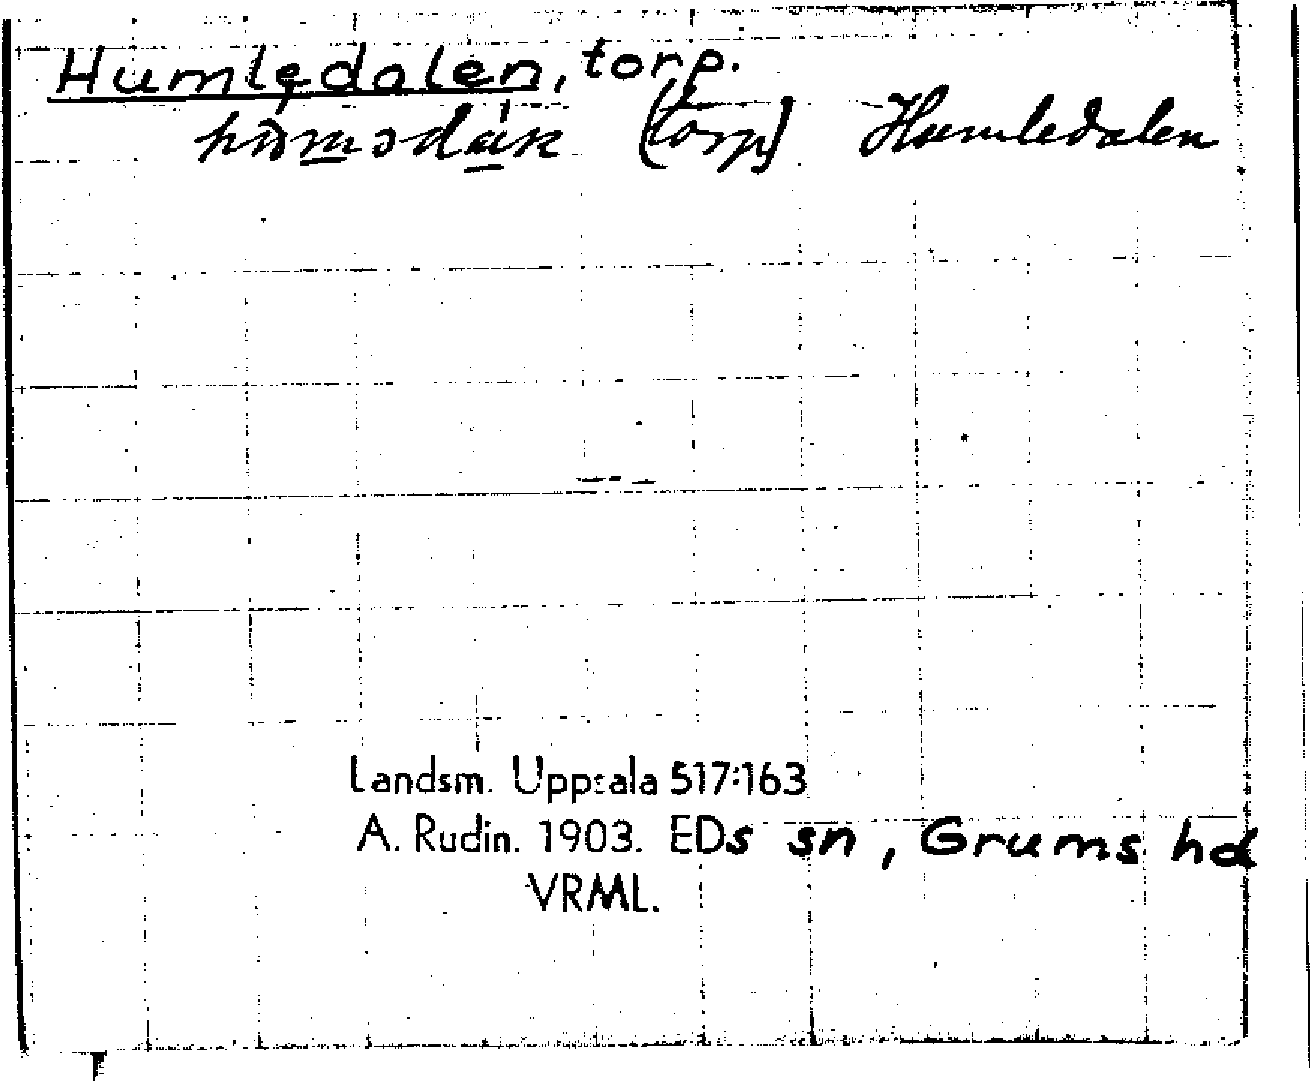 Humledalen, torp.
(torp) Humledalen
Landsm. Uppsala 517:163
A. Rudin. 1903. EDs sn, Grums hd
VRML.